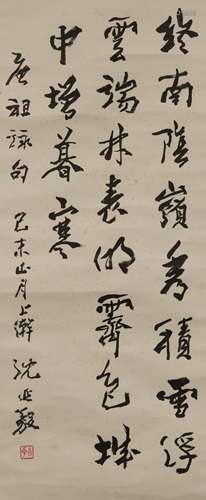 終南陰嶺秀積雪浮
雲端林表明霽色城
中增暮寒
唐祖詠句 己未正月上澣 沈延毅